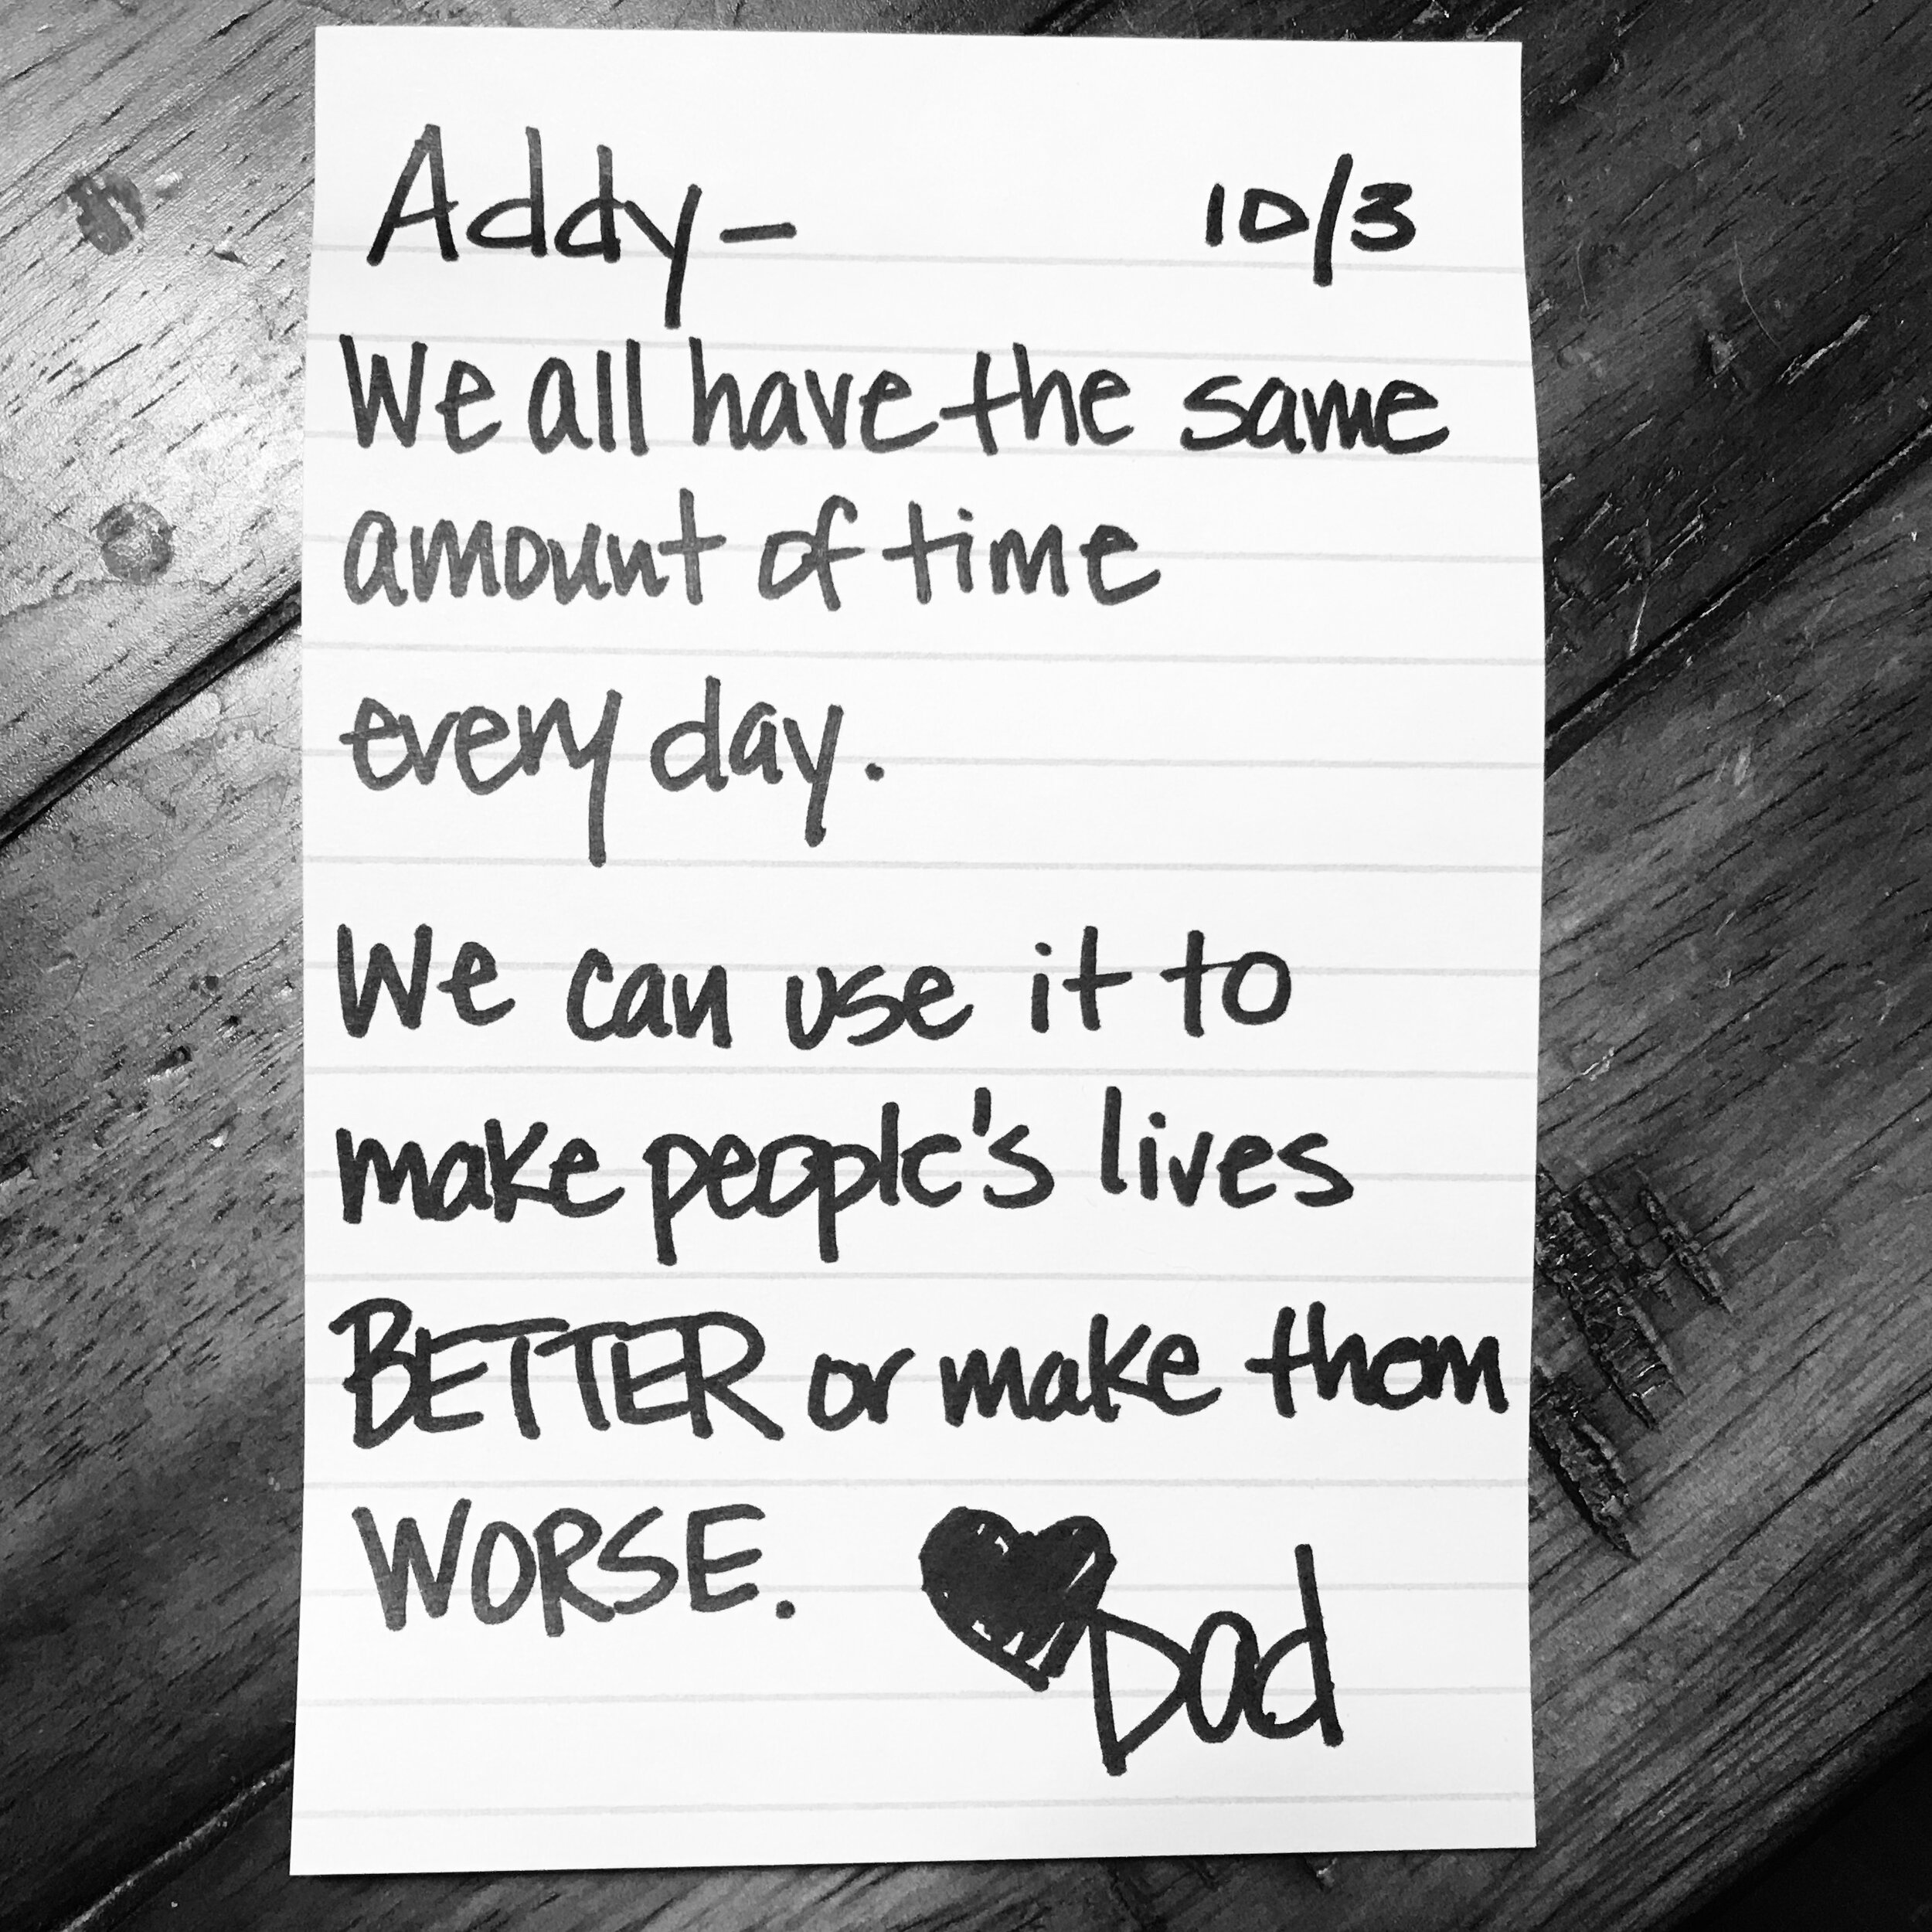 Addy- 10/3
We all have the same
amount of time
every day.
We can use it to
make people's lives
BETTER or make them
WORSE.
Dad